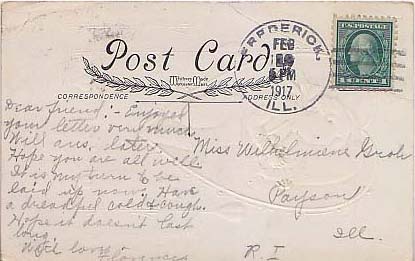 Post Card
CORRESPONDENCE
ADDRESS ONLY
FREDERICK,
FEB
PM
1917
ILL.
U.S. POSTAGE
1 CENT 1
Dear friend:- Enjoyed
your letter very much.
Will ans. later.
Hope you are all well.
It is my turn to be
laid up now. Have
a dreadful cold & cough.
Hope it doesn't last
long.
With love -
Florence
Miss Wilhelmiene Groh
Payson
Ill.
R. I